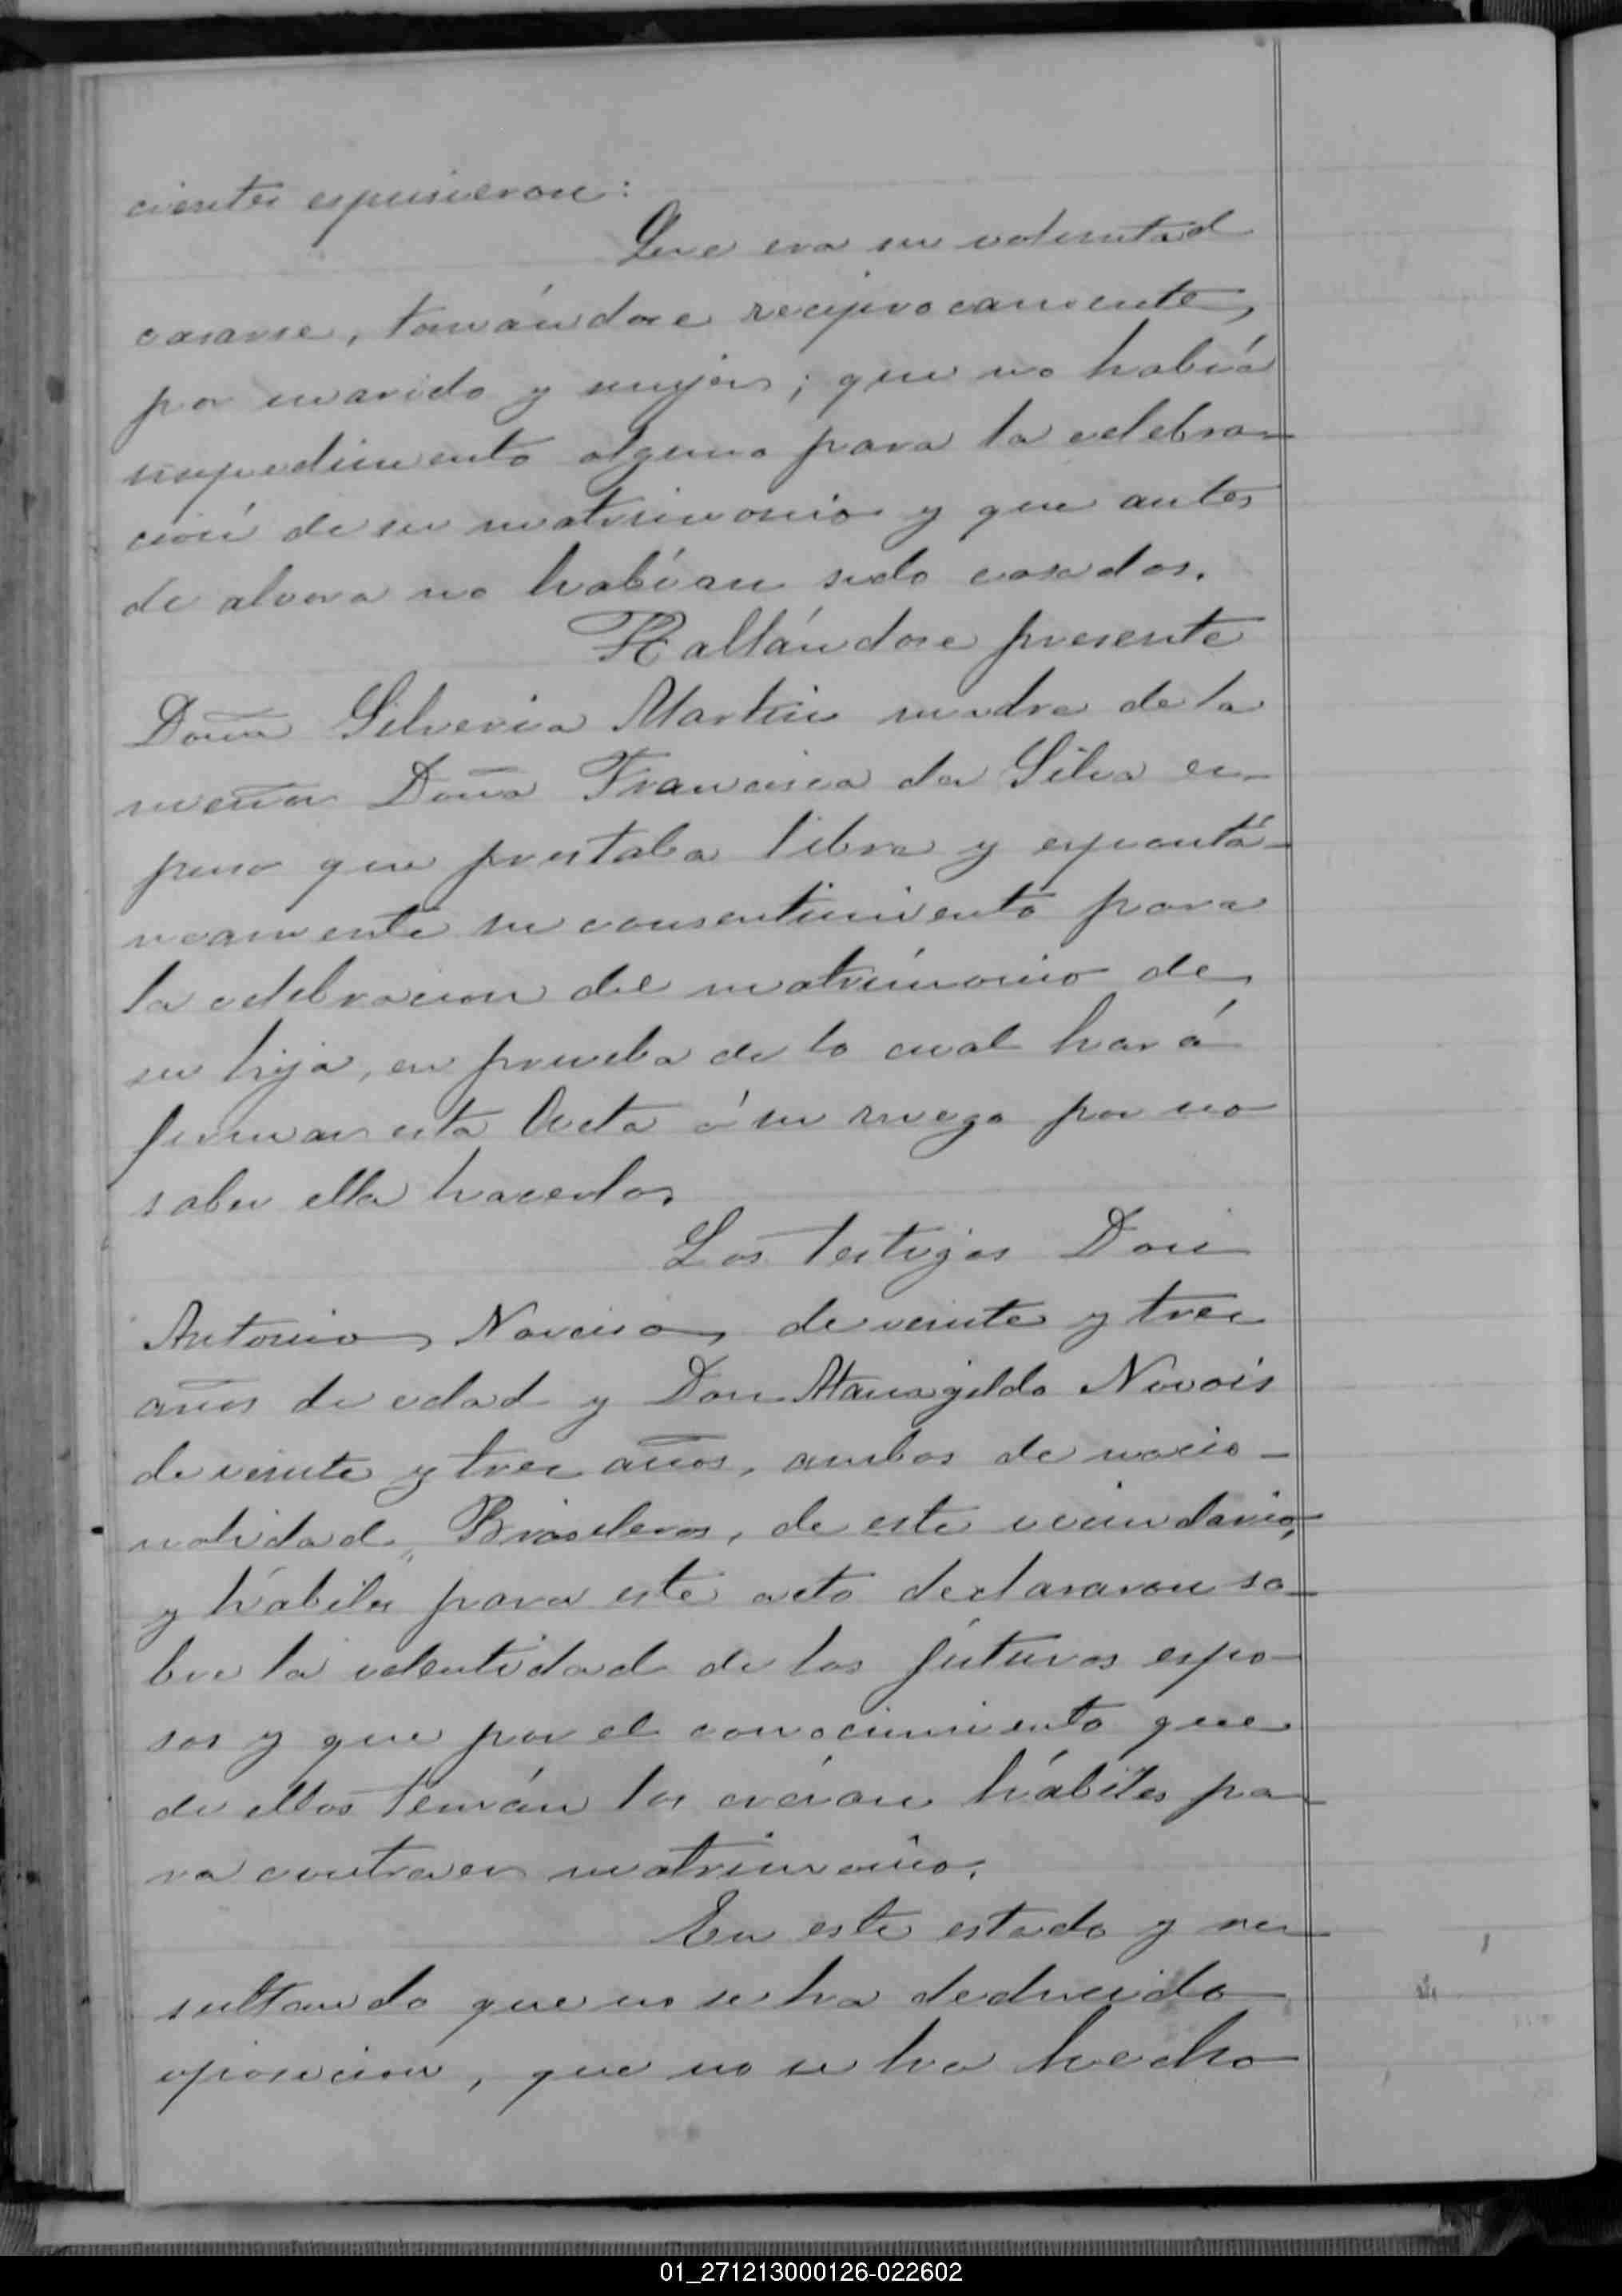 cientes espusieron:
Que era su voluntad
casarse, tomándose reciprocamente,
por marido y mujer; que no había
impedimento alguno para la celebra-
ción de su matrimonio y que antes
de ahora no habían sido casados.
Hallándose presente
Doña Silveria Martin madre de la
menor Doña Francisca da Silva es-
puso que prestaba libre y espontá-
neamente su consentimiento para
la celebracion del matrimonio de
su hija, en prueba de lo cual hará
firmar esta Acta á su ruego por no
saber ella hacerlo.
Los testigos Don
Antonio Narciso, de veinte y tres
años de edad y Don
de veinte y tres años, ambos de nacio-
nalidad Brasileros, de este vecindario,
y hábiles para este acto declararon so-
bre la identidad de los futuros espo-
sos y que por el conocimiento que
de ellos tenían los creían hábiles pa-
ra contraer matrimonio.
En este estado y re-
sultando que no se ha deducido
oposicion, que no se ha hecho
01_271213000126-022602